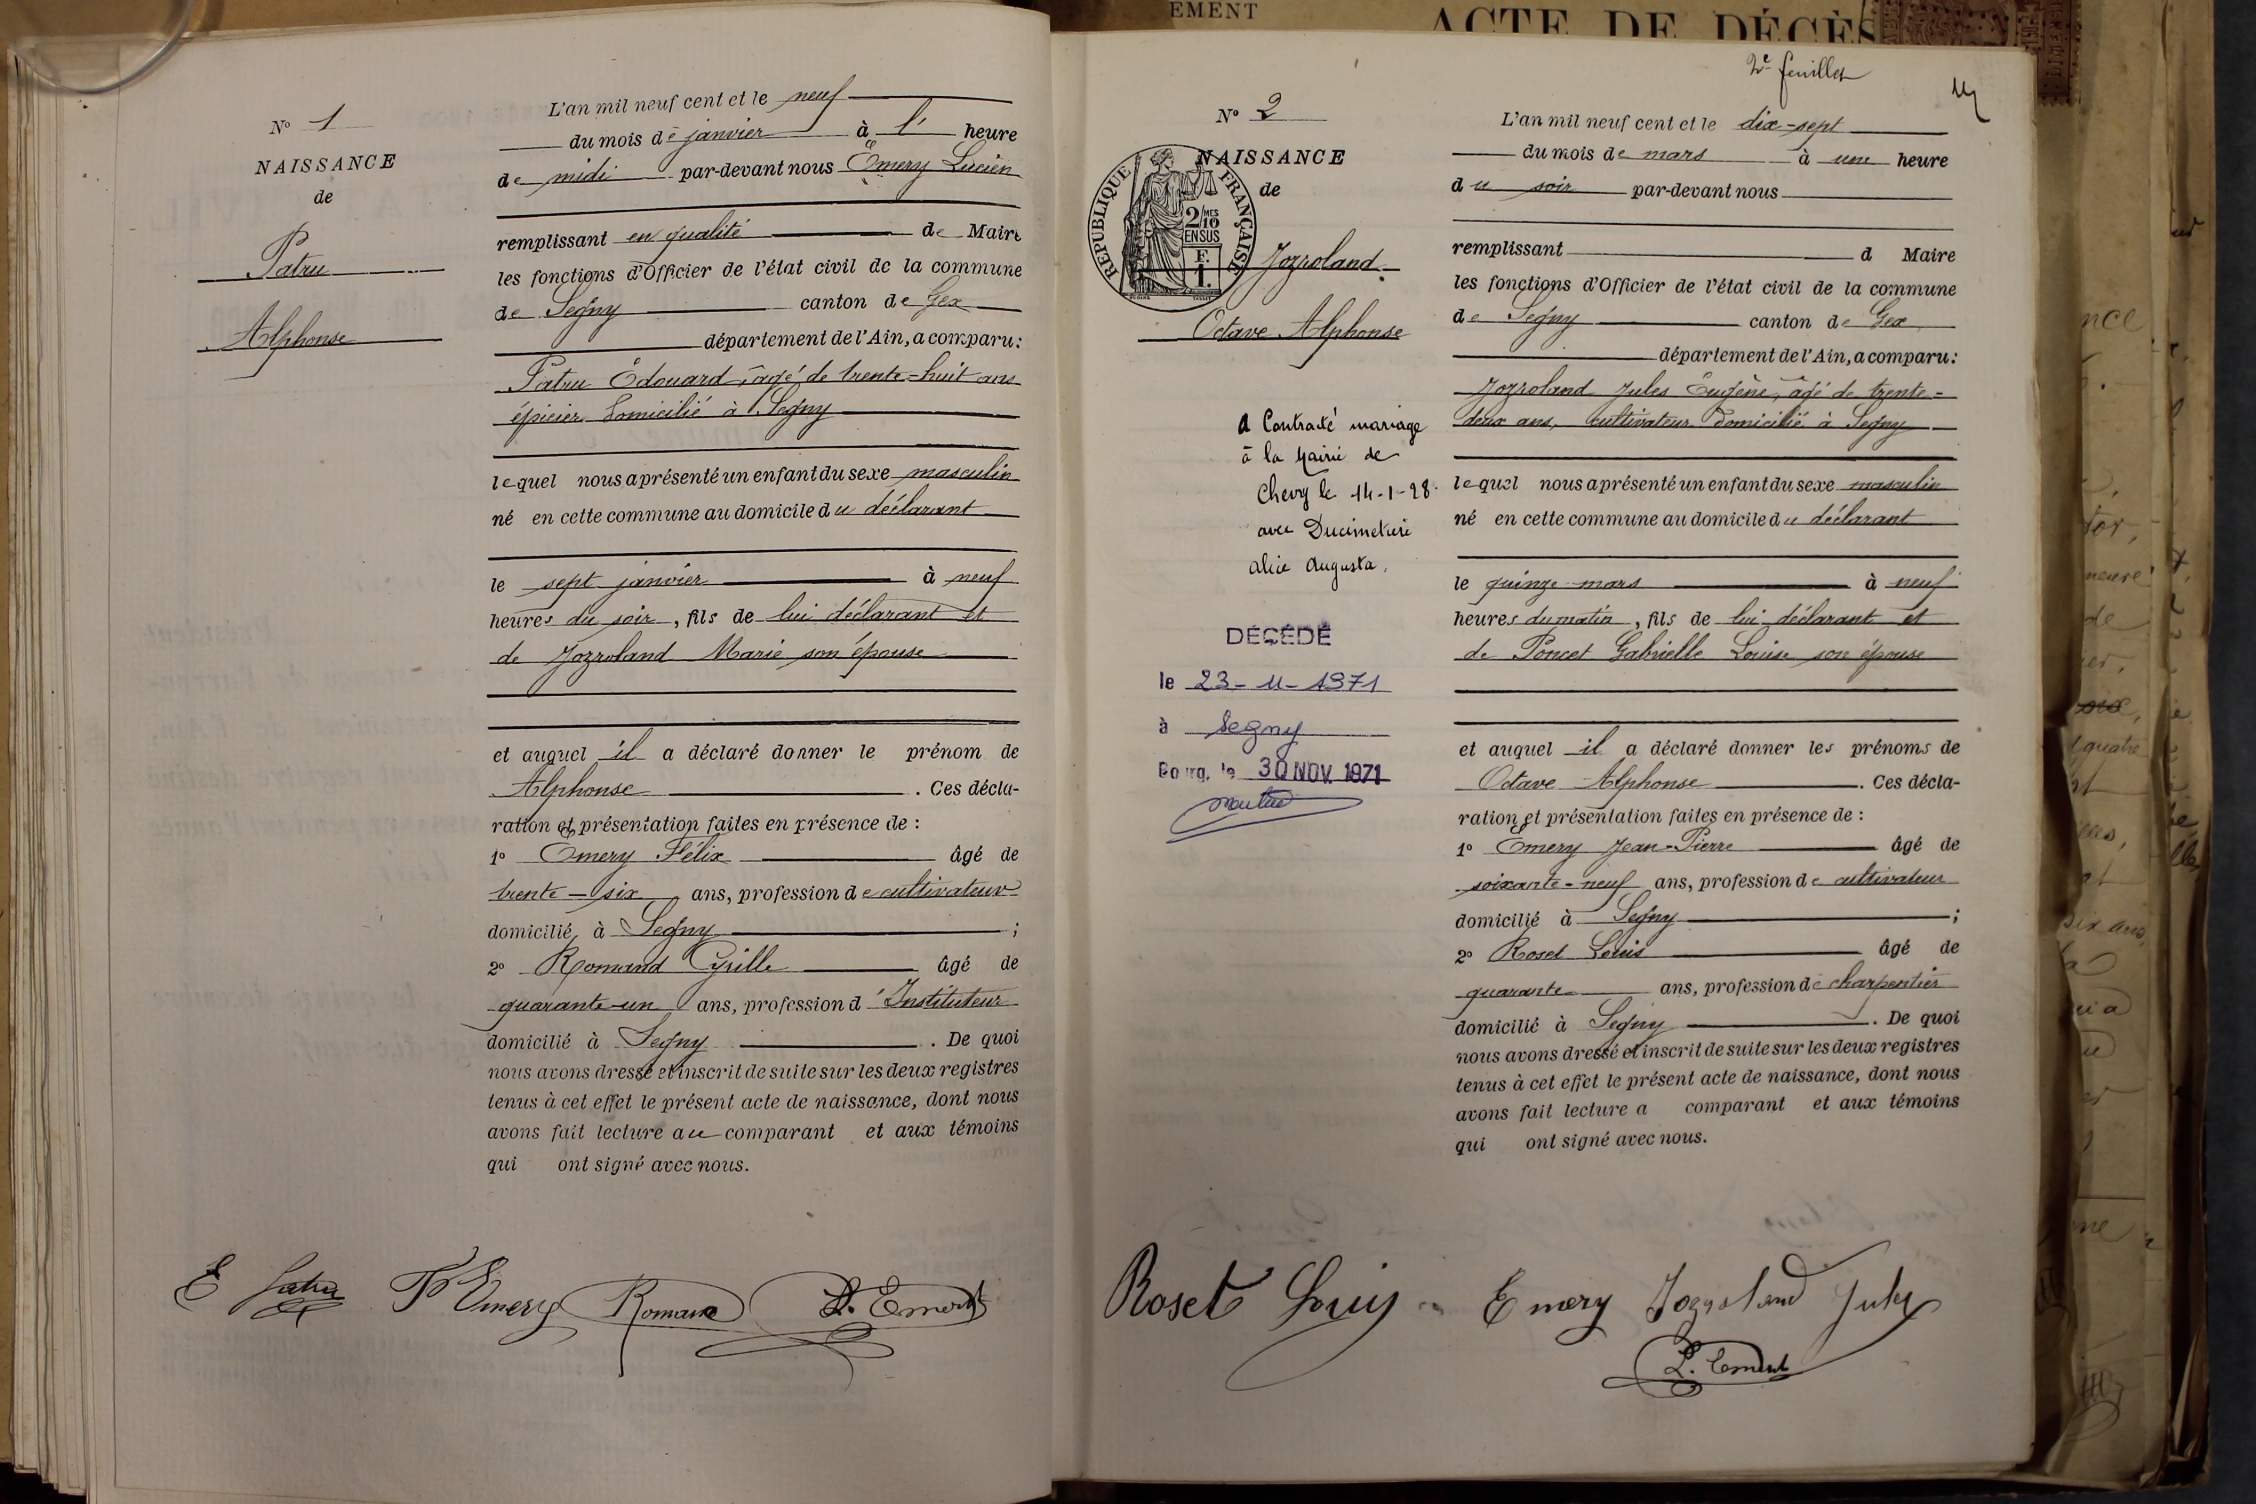 EMENT
ACTE DE DÉCÈS
Nº 1
NAISSANCE
de
Patru
Alphonse
L'an mil neuf cent et le neuf
du mois de janvier à l' heure
de midi par-devant nous Émery Lucien
remplissant en qualité de Maire
les fonctions d'Officier de l'état civil de la commune
de Segny canton de Gex
département de l'Ain, a comparu:
Patru Édouard, âgé de trente-huit ans
épicier domicilié à Segny
lequel nous a présenté un enfant du sexe masculin
né en cette commune au domicile du déclarant
le sept janvier à neuf
heures du soir, fils de lui déclarant et
de Jozroland Marie son épouse
et auquel il a déclaré donner le prénom de
Alphonse. Ces décla-
ration et présentation faites en présence de :
1º Émery Félix âgé de
trente-six ans, profession de cultivateur
domicilié à Segny ;
2º Romand Cyrille âgé de
quarante-un ans, profession d'Instituteur
domicilié à Segny. De quoi
nous avons dressé et inscrit de suite sur les deux registres
tenus à cet effet le présent acte de naissance, dont nous
avons fait lecture au comparant et aux témoins
qui ont signé avec nous.
E Patru F Emery Romand L. Emery
2e feuillet
Nº 2
NAISSANCE
de
REPUBLIQUE FRANÇAISE
2/MES
10
EN SUS
F.
1.
Jozroland
Octave Alphonse
a Contracté mariage
à la Mairie de
Chevry le 14-1-28
avec Ducimetière
alice Augusta.
DÉCÉDÉ
le 23-11-1971
à Segny
Bourg, le 30 NOV. 1971
L'an mil neuf cent et le dix-sept
du mois de mars à une heure
du soir par-devant nous
remplissant d Maire
les fonctions d'Officier de l'état civil de la commune
de Segny canton de Gex
département de l'Ain, a comparu:
Jozroland Jules Eugène, âgé de trente-
deux ans, cultivateur domicilié à Segny
lequel nous a présenté un enfant du sexe masculin
né en cette commune au domicile du déclarant
le quinze mars à neuf
heures du matin, fils de lui déclarant et
de Poncet Gabrielle Louise son épouse
et auquel il a déclaré donner les prénoms de
Octave Alphonse. Ces décla-
ration et présentation faites en présence de :
1º Émery Jean-Pierre âgé de
soixante-neuf ans, profession de cultivateur
domicilié à Segny ;
2º Roset Louis âgé de
quarante ans, profession de charpentier
domicilié à Segny. De quoi
nous avons dressé et inscrit de suite sur les deux registres
tenus à cet effet le présent acte de naissance, dont nous
avons fait lecture a comparant et aux témoins
qui ont signé avec nous.
Roset Louis Emery Jozroland Jules
L. Emery